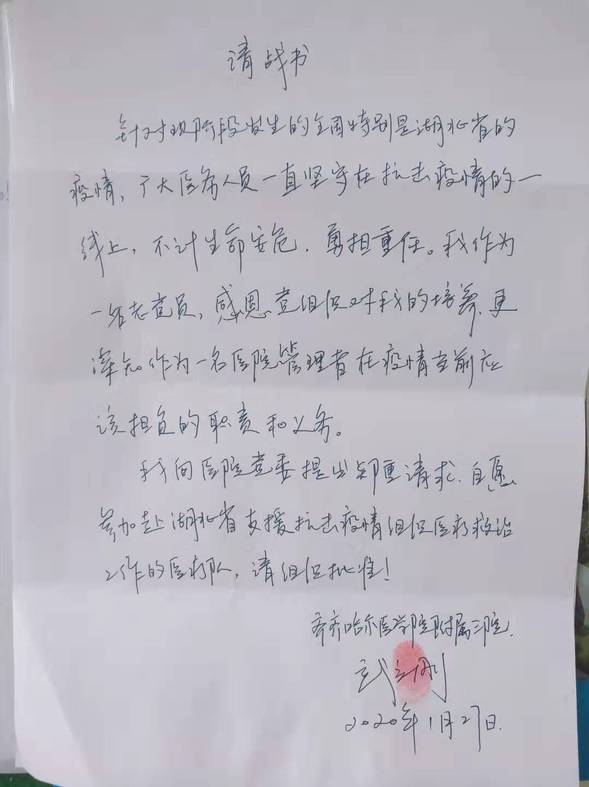 请战书
针对现阶段发生的全国特别是湖北省的
疫情，广大医务人员一直坚守在抗击疫情的一
线上，不计生命安危，勇担重任。我作为
一名老党员，感恩党组织对我的培养，更
深知作为一名医院管理者在疫情当前应
该担负的职责和义务。
我向医院党委提出郑重请求，自愿
参加赴湖北省支援抗击疫情组织医疗救治
工作的医疗队，请组织批准！
齐齐哈尔医学院附属三院
武 刚
2020年1月27日